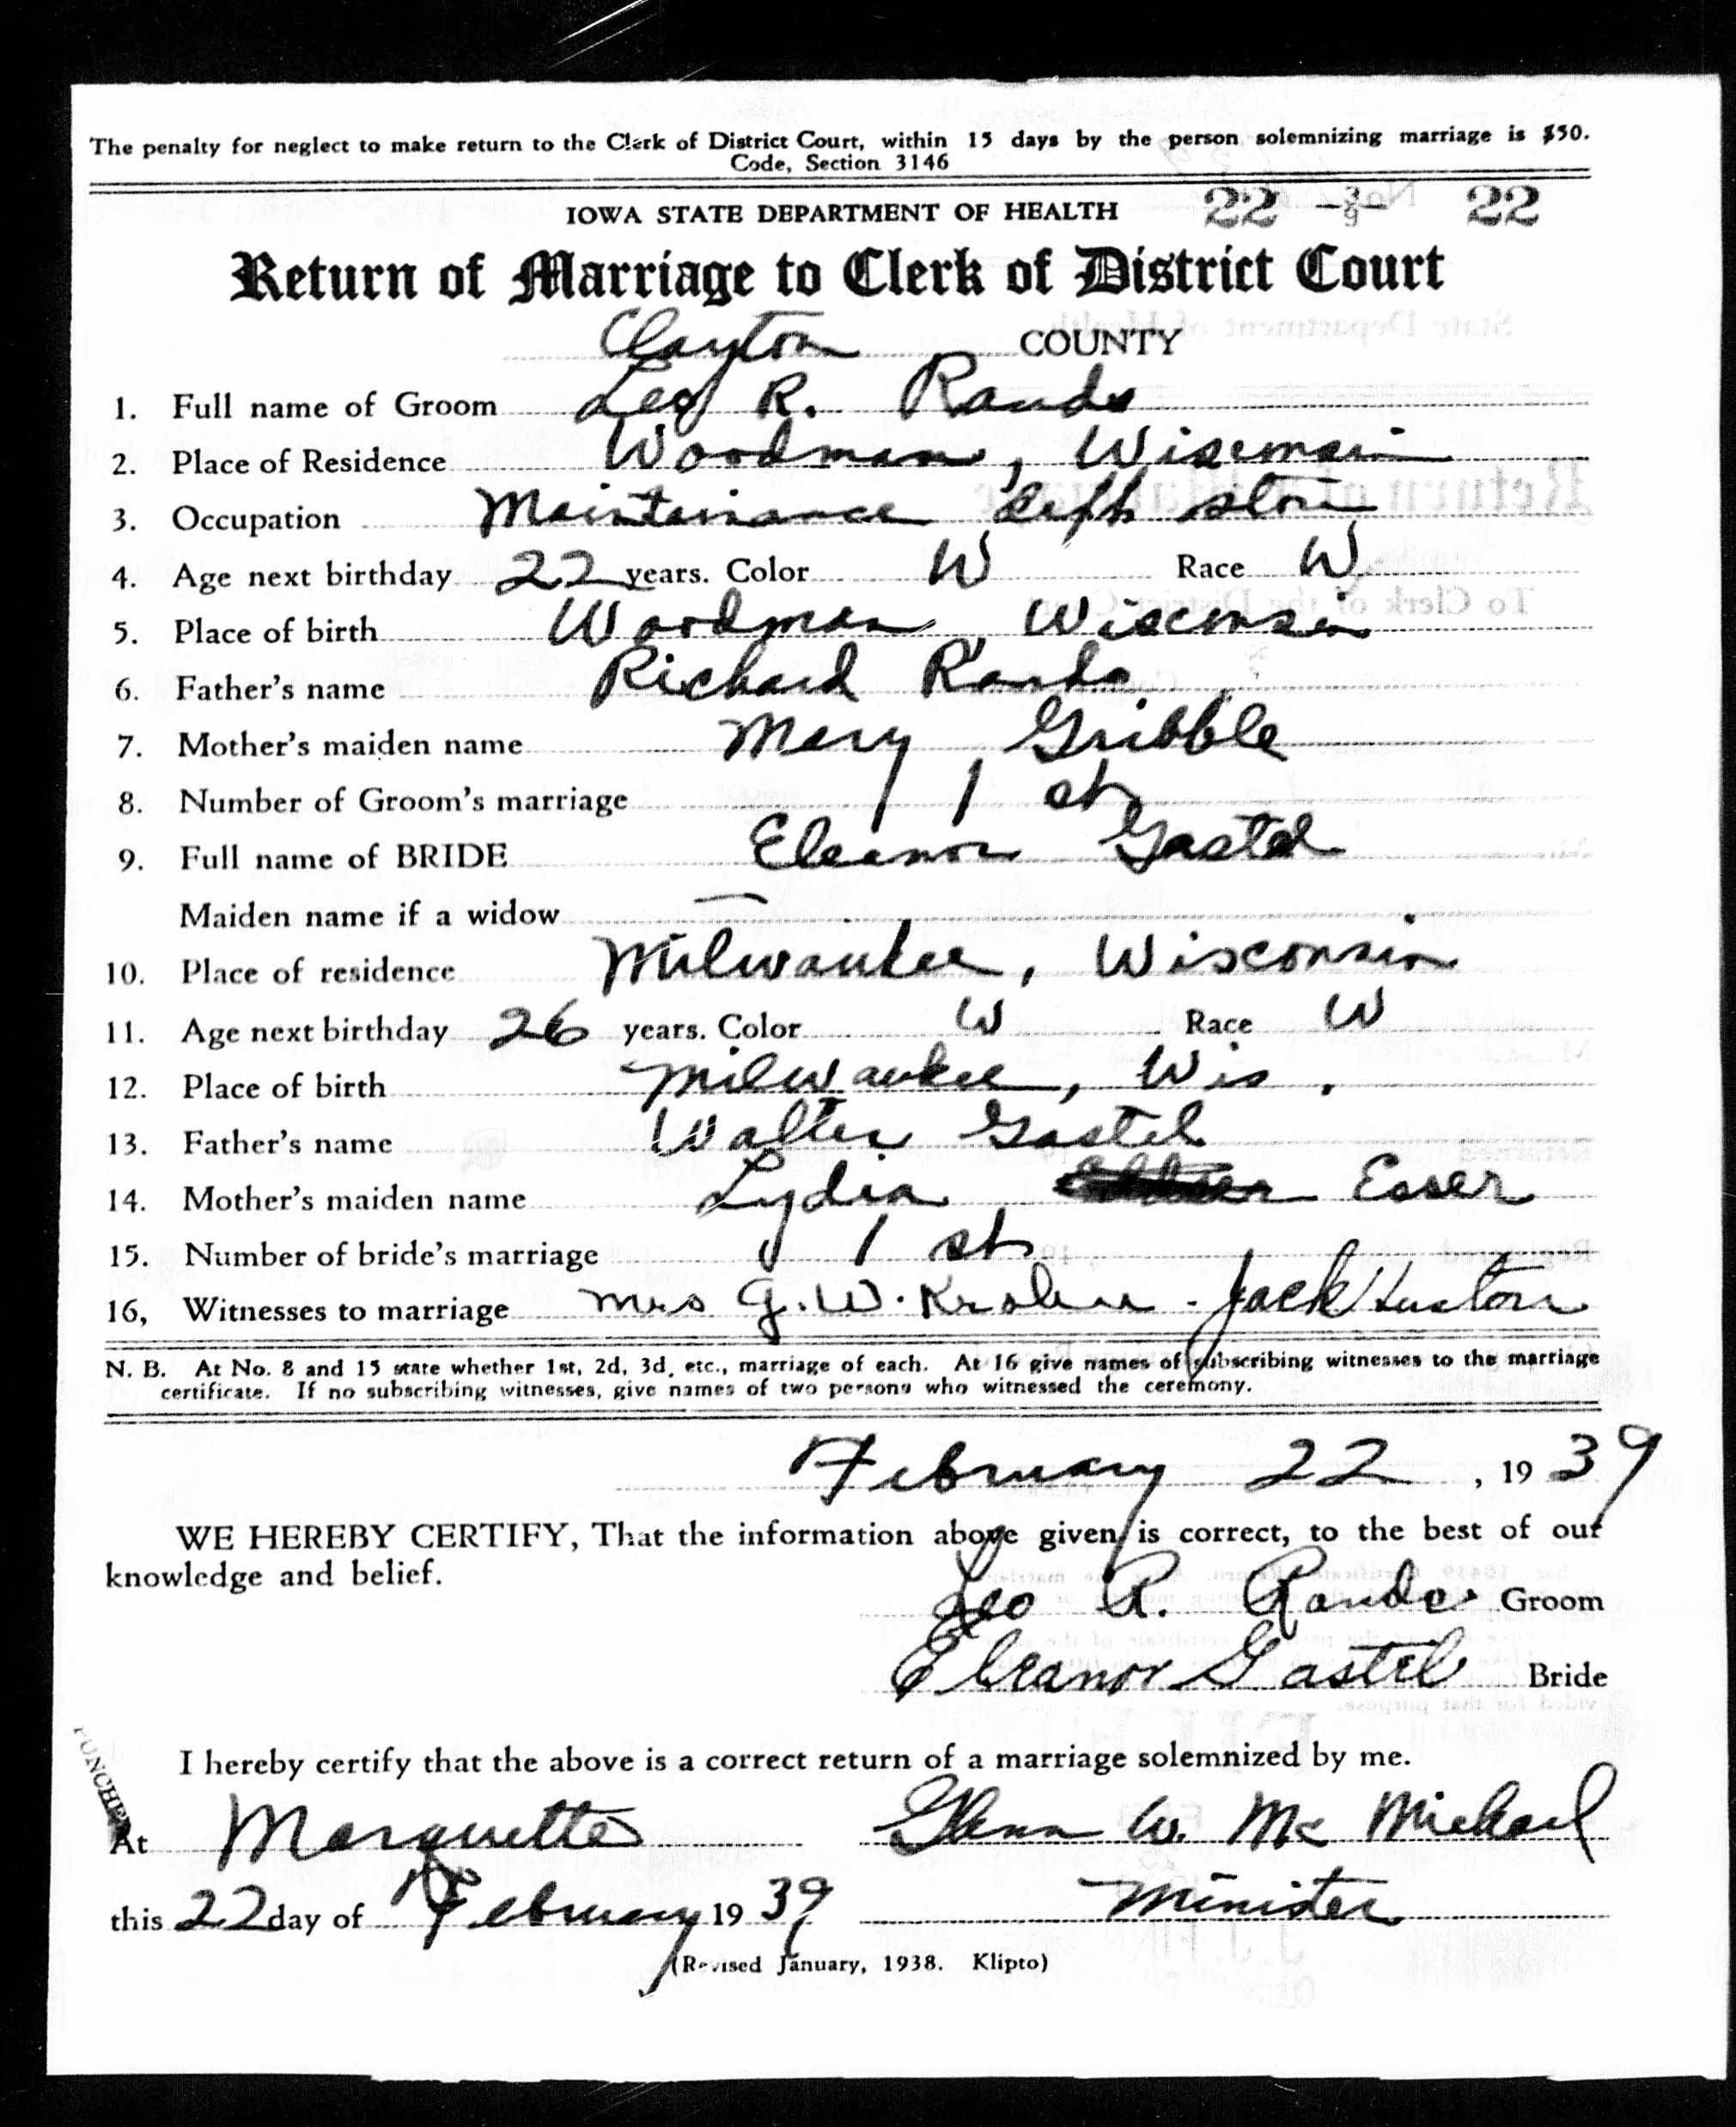 The penalty for neglect to make return to the Clerk of District Court, within 15 days by the person solemnizing marriage is $50.
Code, Section 3146
IOWA STATE DEPARTMENT OF HEALTH 22 -39- 22
Return of Marriage to Clerk of District Court
Clayton COUNTY
1. Full name of Groom Leo R. Rands
2. Place of Residence Woodman, Wisconsin
3. Occupation Maintainance Deph store
4. Age next birthday 22 years. Color W Race W
5. Place of birth Woodman, Wisconsin
6. Father's name Richard Rands
7. Mother's maiden name Mary Gribble
8. Number of Groom's marriage 1 st
9. Full name of BRIDE Eleanor Gastel
Maiden name if a widow —
10. Place of residence Milwaukee, Wisconsin
11. Age next birthday 26 years. Color W Race W
12. Place of birth Milwaukee, Wis.
13. Father's name Walter Gastel
14. Mother's maiden name Lydia Esser
15. Number of bride's marriage 1 st
16, Witnesses to marriage Mrs G. W. Krohn - Jack Huston
N. B. At No. 8 and 15 state whether 1st, 2d, 3d, etc., marriage of each. At 16 give names of subscribing witnesses to the marriage
certificate. If no subscribing witnesses, give names of two persons who witnessed the ceremony.
February 22, 1939
WE HEREBY CERTIFY, That the information above given is correct, to the best of our
knowledge and belief.
Leo R. Rands Groom
Eleanor Gastel Bride
I hereby certify that the above is a correct return of a marriage solemnized by me.
PUNCHED
At Marquette Glenn W. Mc Michael
this 22 day of February 1939 Minister
(Revised January, 1938. Klipto)